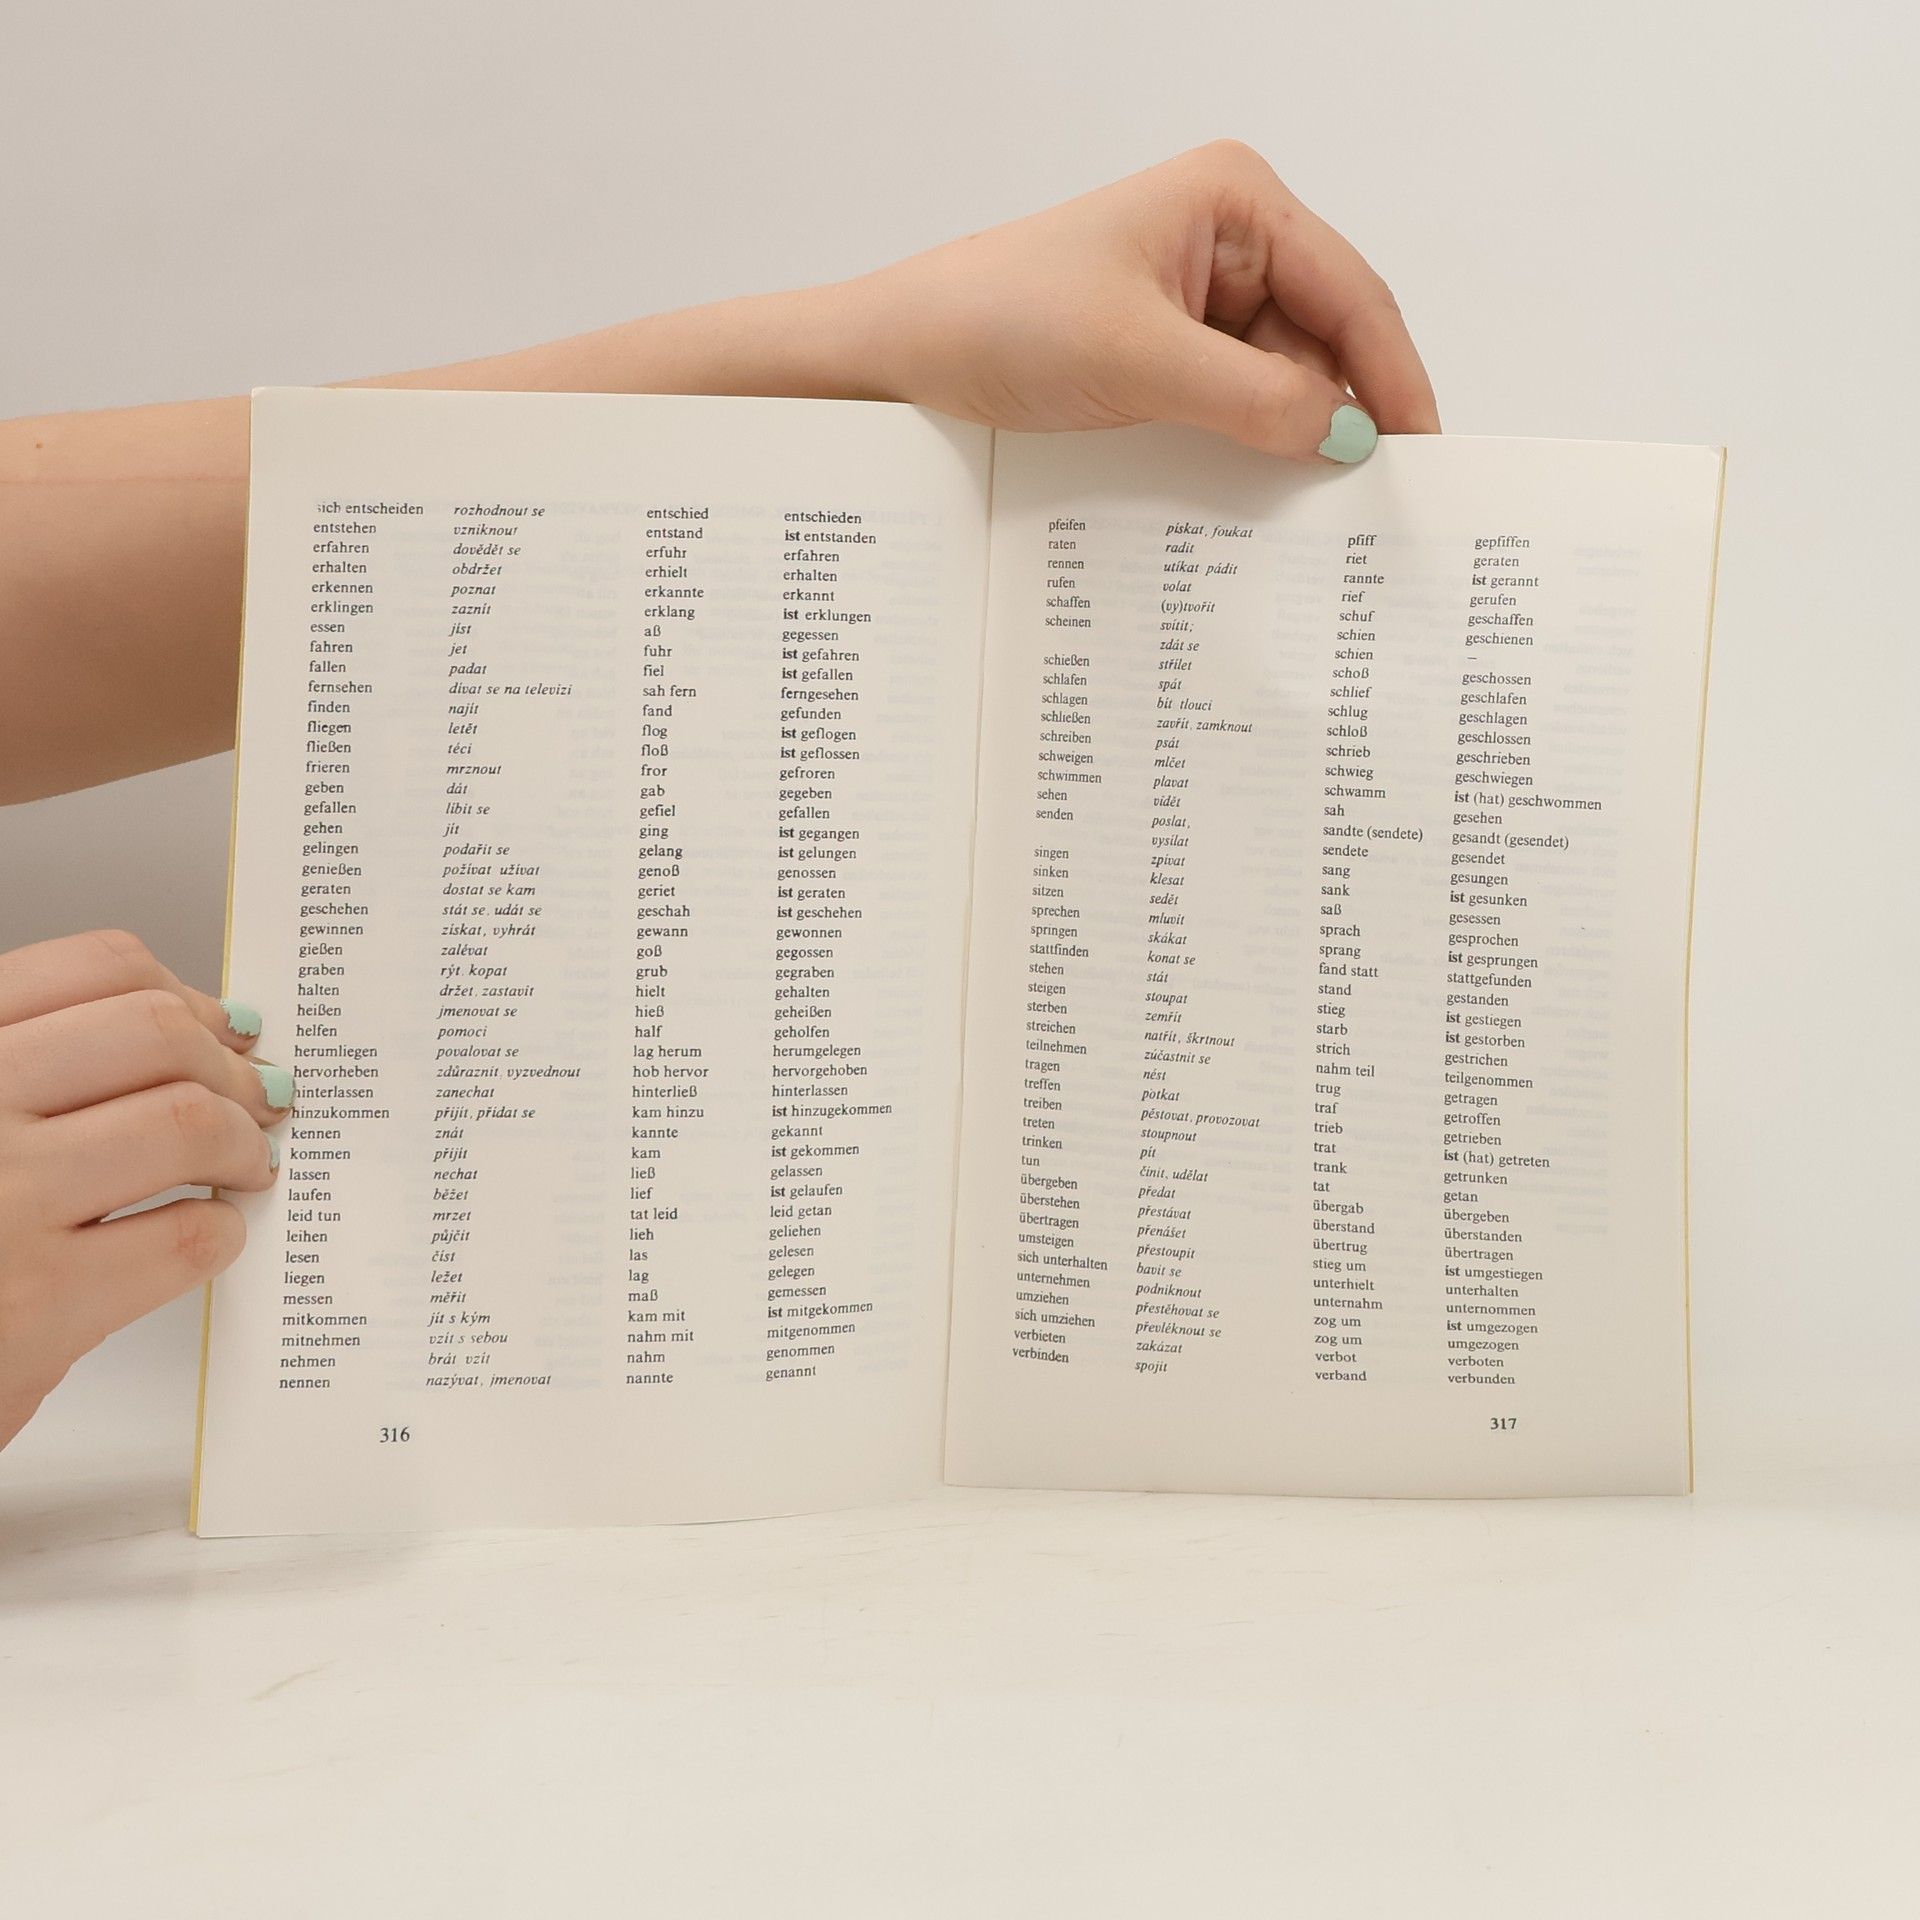 sich entscheiden rozhodnout se entschied entschieden
entstehen vzniknout entstand ist entstanden
erfahren dovědět se erfuhr erfahren
erhalten obdržet erhielt erhalten
erkennen poznat erkannte erkannt
erklingen zaznít erklang ist erklungen
essen jíst aß gegessen
fahren jet fuhr ist gefahren
fallen padat fiel ist gefallen
fernsehen dívat se na televizi sah fern ferngesehen
finden najít fand gefunden
fliegen letět flog ist geflogen
fließen téci floß ist geflossen
frieren mrznout fror gefroren
geben dát gab gegeben
gefallen líbit se gefiel gefallen
gehen jít ging ist gegangen
gelingen podařit se gelang ist gelungen
genießen požívat užívat genoß genossen
geraten dostat se kam geriet ist geraten
geschehen stát se, udát se geschah ist geschehen
gewinnen získat, vyhrát gewann gewonnen
gießen zalévat goß gegossen
graben rýt, kopat grub gegraben
halten držet, zastavit hielt gehalten
heißen jmenovat se hieß geheißen
helfen pomoci half geholfen
herumliegen povalovat se lag herum herumgelegen
hervorheben zdůraznit, vyzvednout hob hervor hervorgehoben
hinterlassen zanechat hinterließ hinterlassen
hinzukommen přijít, přidat se kam hinzu ist hinzugekommen
kennen znát kannte gekannt
kommen přijít kam ist gekommen
lassen nechat ließ gelassen
laufen běžet lief ist gelaufen
leid tun mrzet tat leid leid getan
leihen půjčit lieh geliehen
lesen číst las gelesen
liegen ležet lag gelegen
messen měřit maß gemessen
mitkommen jít s kým kam mit ist mitgekommen
mitnehmen vzít s sebou nahm mit mitgenommen
nehmen brát vzít nahm genommen
nennen nazývat, jmenovat nannte genannt
316
pfeifen pískat, foukat pfiff gepfiffen
raten radit riet geraten
rennen utíkat pádit rannte ist gerannt
rufen volat rief gerufen
schaffen (vy)tvořit schuf geschaffen
scheinen svítit; schien geschienen
zdát se schien –
schießen střílet schoß geschossen
schlafen spát schlief geschlafen
schlagen bít tlouci schlug geschlagen
schließen zavřít, zamknout schloß geschlossen
schreiben psát schrieb geschrieben
schweigen mlčet schwieg geschwiegen
schwimmen plavat schwamm ist (hat) geschwommen
sehen vidět sah gesehen
senden poslat, sandte (sendete) gesandt (gesendet)
vysílat sendete gesendet
singen zpívat sang gesungen
sinken klesat sank ist gesunken
sitzen sedět saß gesessen
sprechen mluvit sprach gesprochen
springen skákat sprang ist gesprungen
stattfinden konat se fand statt stattgefunden
stehen stát stand gestanden
steigen stoupat stieg ist gestiegen
sterben zemřít starb ist gestorben
streichen natřít, škrtnout strich gestrichen
teilnehmen zúčastnit se nahm teil teilgenommen
tragen nést trug getragen
treffen potkat traf getroffen
treiben pěstovat, provozovat trieb getrieben
treten stoupnout trat ist (hat) getreten
trinken pít trank getrunken
tun činit, udělat tat getan
übergeben předat übergab übergeben
überstehen přestávat überstand überstanden
übertragen přenášet übertrug übertragen
umsteigen přestoupit stieg um ist umgestiegen
sich unterhalten bavit se unterhielt unterhalten
unternehmen podniknout unternahm unternommen
umziehen přestěhovat se zog um ist umgezogen
sich umziehen převléknout se zog um umgezogen
verbieten zakázat verbot verboten
verbinden spojit verband verbunden
317